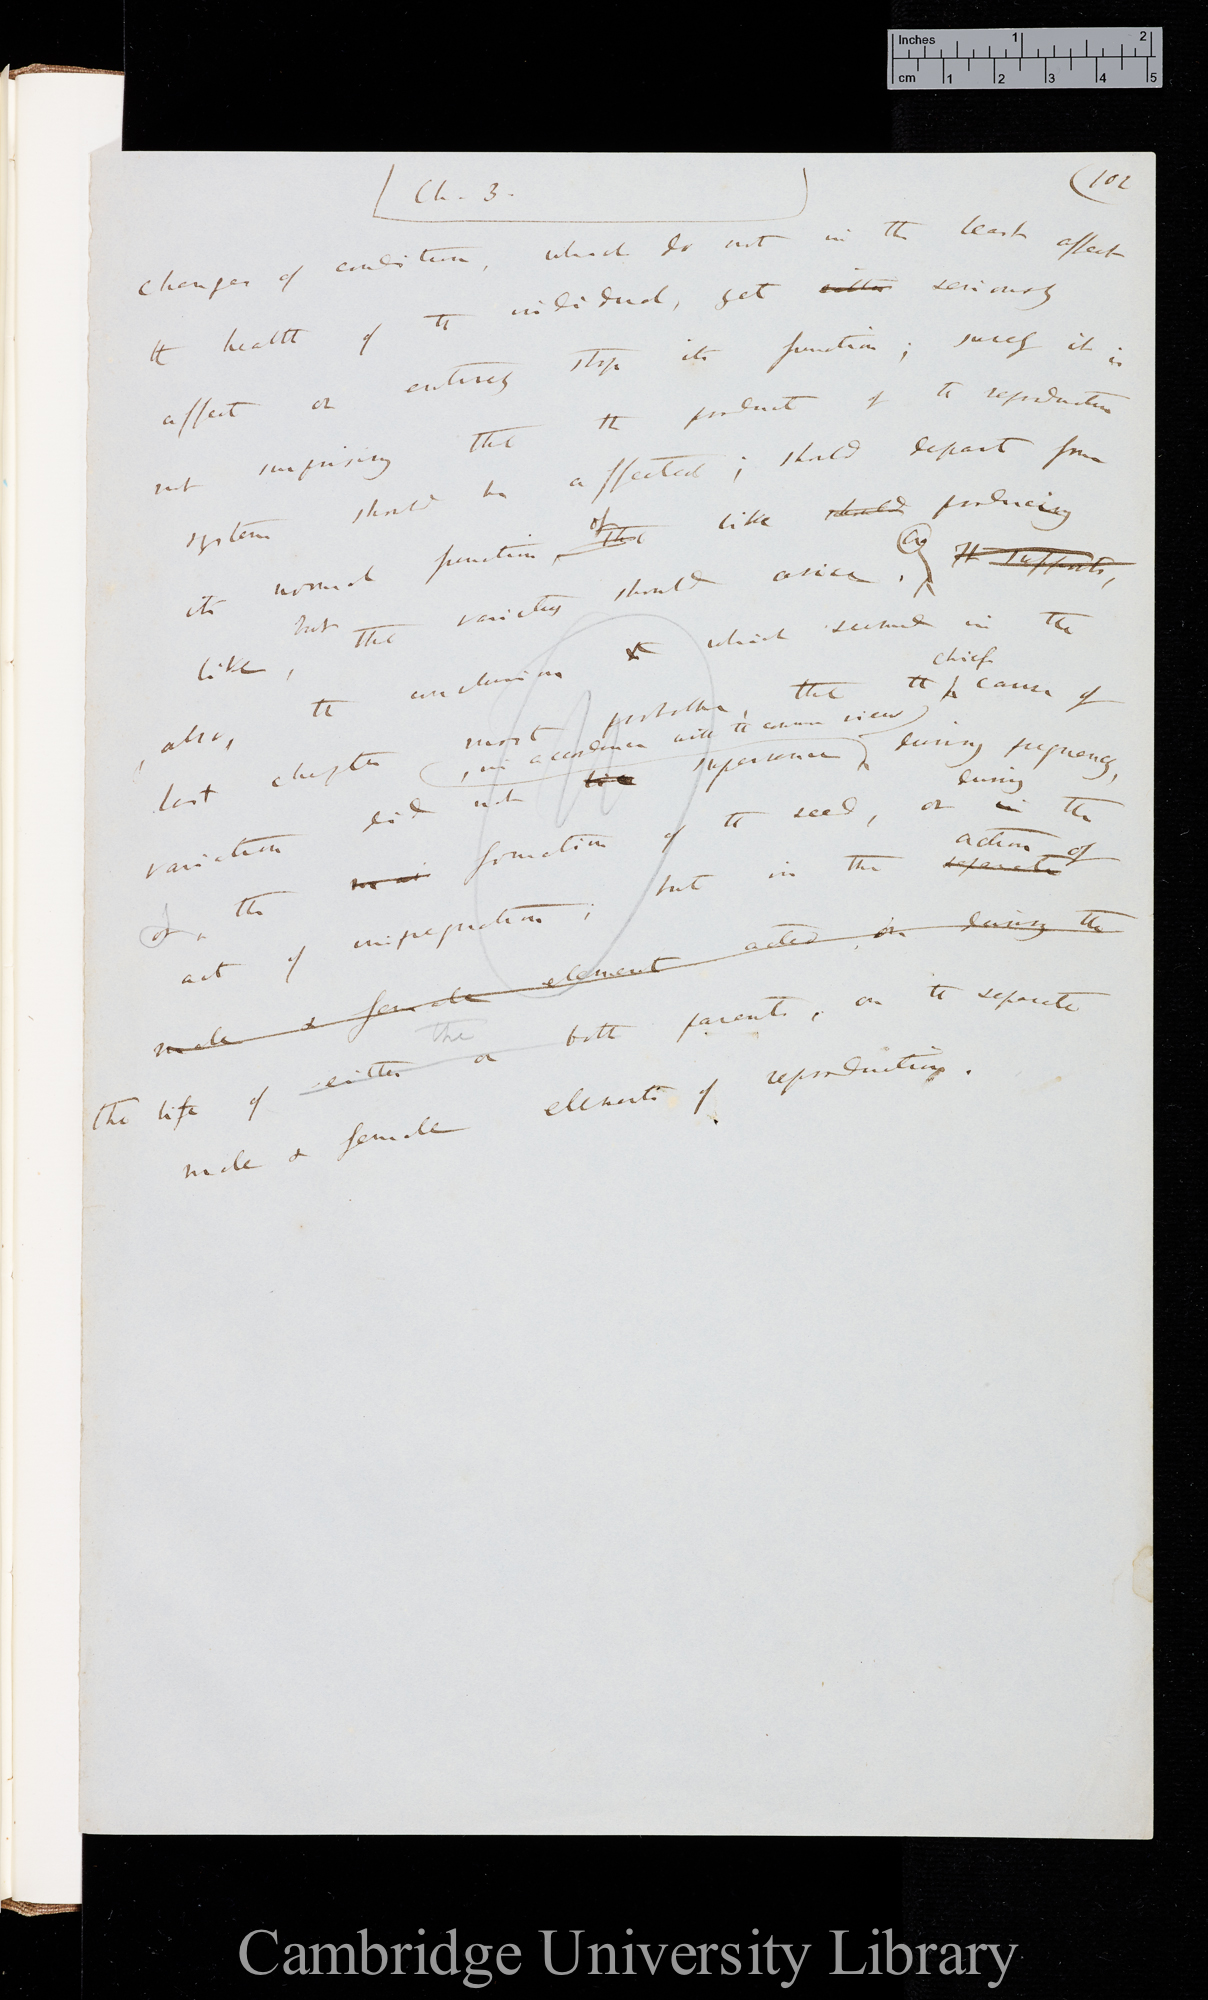 Inches 1 2
cm 1 2 3 4 5
Ch. 3.
(102
changes of condition, which do not in the least affect
the health of the individual, yet either seriously
affect or entirely stop its function; surely it is
not surprising that the product of the reproductive
system should be affected; should depart from
its normal function, of the like should producing
like, but that varieties should arise. (a) It supports,
also, the conclusion to which seemed in the
last chapter most probable, that the chief cause of
, in accordance with the common view
variation did not lie supervene during pregnancy,
or the formation of the seed, or in during the
act of impregnation; but in the separate action of
male & female element acted on during the
the life of either or the both parents, on the separate
male & female elements of reproduction.
Cambridge University Library